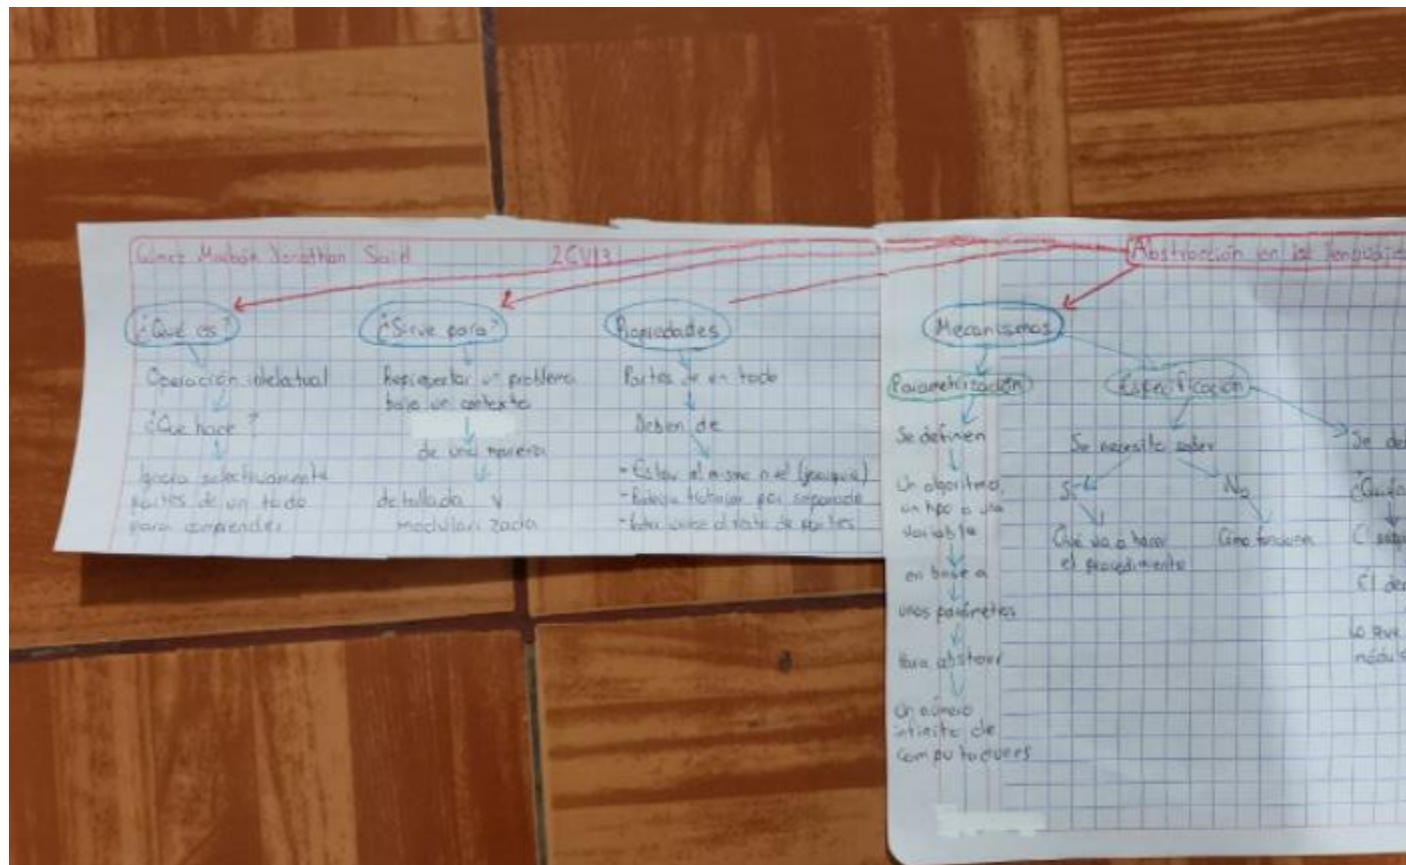 2CV13
Abstracción en los lenguajes
¿Qué es?
Operación intelectual
¿Qué hace?
Ignora selectivamente
partes de un todo
para comprender
¿Sirve para?
Representar un problema
bajo un contexto
de una manera
detallada y
modularizada
Propiedades
Partes de un todo
Deben de
- Estar al mismo nivel (jerarquia)
- trabajar por separado
- el resto de partes
Mecanismos
Parametrización
Se definen
Un algoritmo,
un tipo o una
variable
en base a
unos parámetros
Para abstraer
Un número
infinito de
computaciones
Especificación
Se necesita saber
Si
Qué va a hacer
el procedimiento
No
Cómo funciona
Se de
El de
Lo que
módul